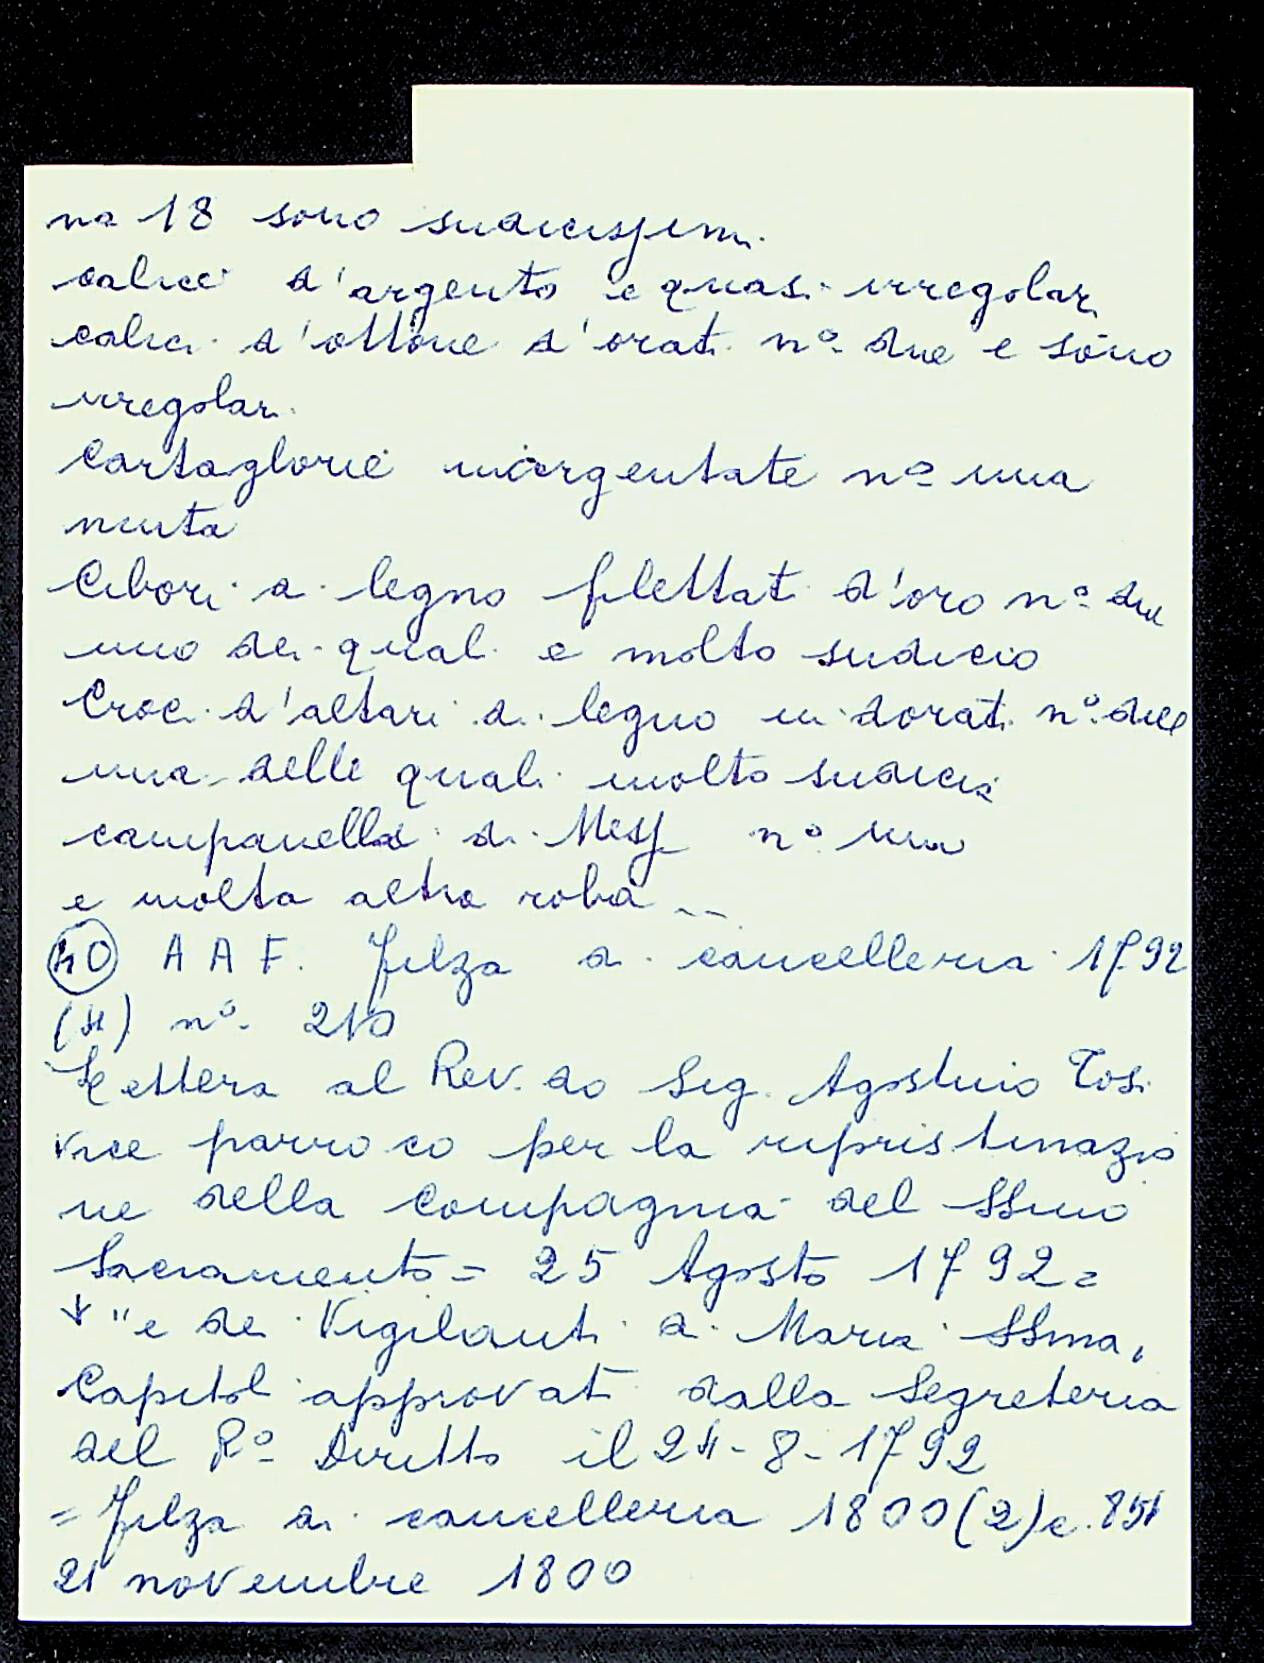 na 18 sono sudicissimi.
calici d'argento e quasi irregolari
calici d'ottone d'orati nº due e sono
irregolari.
Cartaglorie inargentate nº una
muta
Cibori di legno filettati d'oro nº due
uno dei quali e molto sudicio
Croci d'altari di legno in dorati nº due
una delle quali molto sudicia
campanella di Mess nº una
e molta altra roba --
40 A A F. Filza di cancelleria 1792
(4) nº 210
Lettera al Rev. do Sig. Agostino Tosi
vice parroco per la ripristinazio
ne della Compagnia del SSmo
Sacramento = 25 Agosto 1792 =
↓ "e dei Vigilanti di Maria SSma,
Capitoli approvati dalla Segreteria
del Rº Diritto il 24-8-1792
= Filza di cancelleria 1800 (2) c. 854
21 novembre 1800